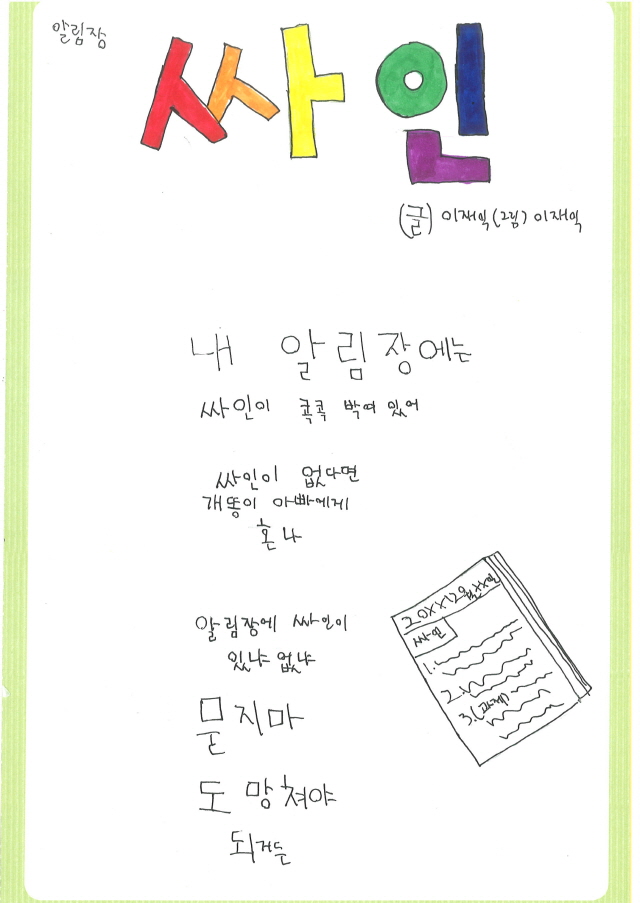 알림장
싸인
(글) 이재익 (그림) 이재익
내 알림장에는
싸인이 콕콕 박여 있어
싸인이 없다면
개똥이 아빠에게
혼나
알림장에 싸인이
있냐 없냐
묻지마
도망쳐야
되거든
20XX12월XX일
싸인
1.
2.
3.(과제)